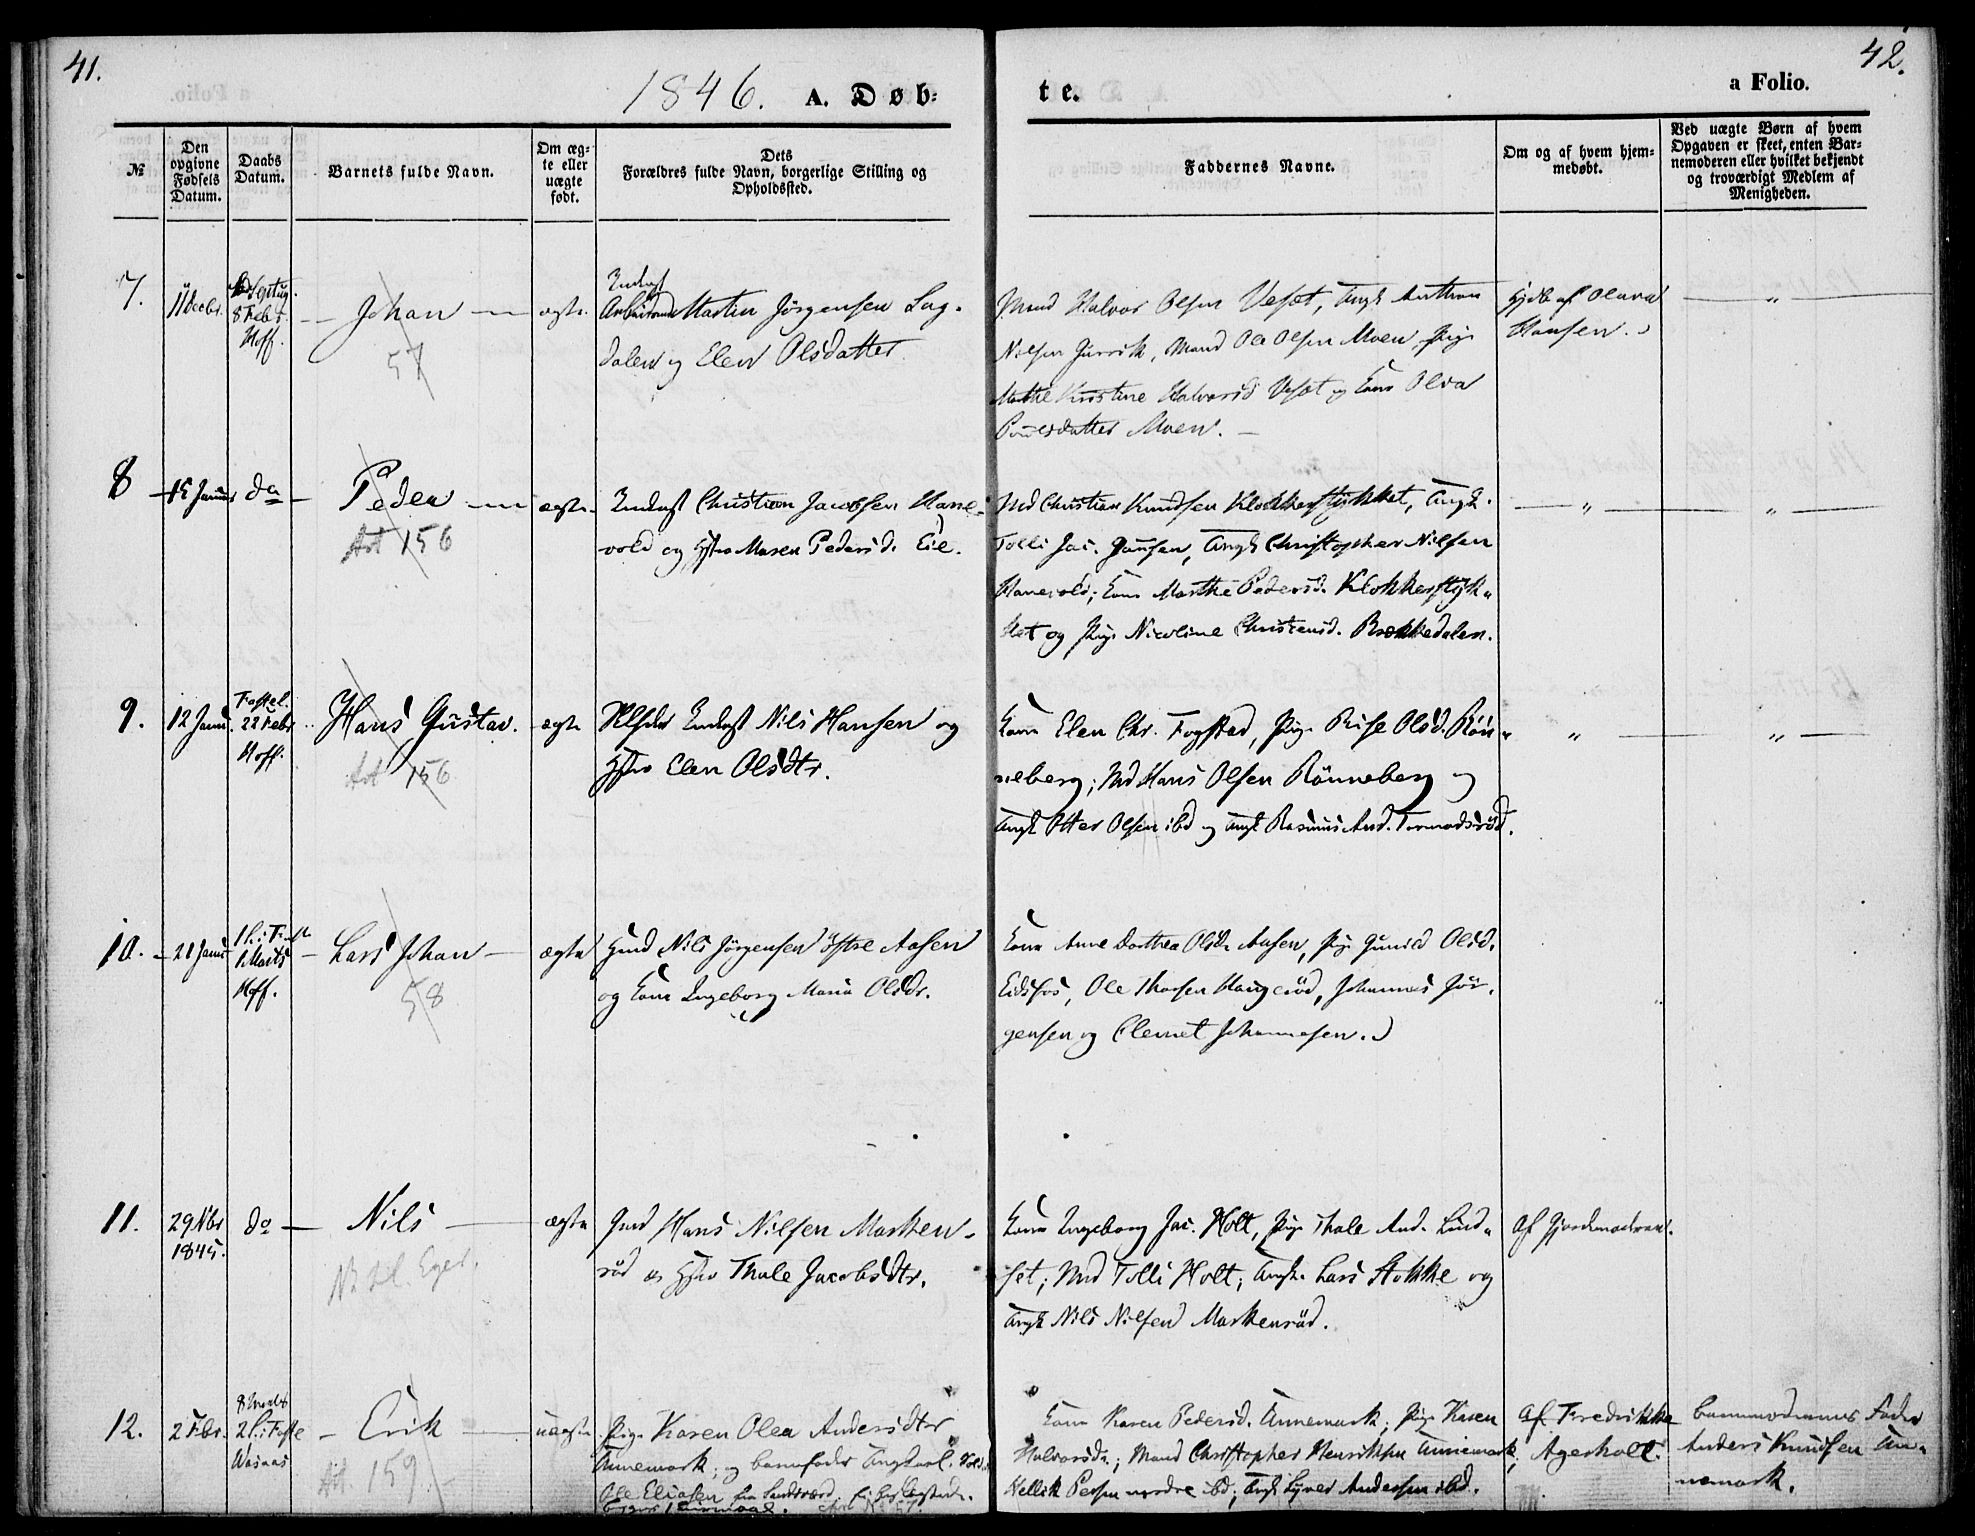 41.
42.
1846. A. Døb-
te.
a Folio.
№
Den opgivne Fødsels Datum.
Daabs Datum.
Barnets fulde Navn.
Om æg-te eller uægte født.
Dets
Forældres fulde Navn, borgerlige Stilling og
Opholdssted.
Faddernes Navne.
Om og af hvem hjem-
medøbt.
Ved uægte Børn af hvem
Opgaven er skeet, enten Bar-
nemoderen eller hvilket bekjendt
og troværdigt Medlem af
Menigheden.
7.
11 Decbr.
Septug.
8 Febr.
Hoff.
Johan
57
ægte.
Martin Jörgensen Lag-
dalen og Elen Olsdatter
Mand Halvor Olsen Vesæt, Ungk Anthon
Nilsen, Mand Ole Olsen Moen, Pige
Marthe Kirstine Halvorsd Vesæt og Kone Olea
Poulsdatter Moen.
Hjdb af Olava
Hansen.
8
15 Januar
do
Peder
Art 156
ægte
Indst Christian Jacobsen Hane-
vold og Hstr Maren Pedersd. Eie.
Md Christian Knudsen Klokkerstykket, Ungk.
Tolli Jac. Hansen, Ungk Christopher Nilsen
Hanevold; Kone Marthe Pedersd. Klokkerstyk-
ket og Pige Nicoline Christensd. Brekkedalen.
9.
12 Janu.
Fastel.
22 Febr
Hoff.
Hans Gustav.
Art 156
ægte
Indst Nils Hansen og
Hstr Elen Olsdtr.
Kone Elen Chr. Fogstad, Pige Rise Olsd. Rön-
neberg; Md Hans Olsen Rönneberg og
Ungk Otter Olsen ibd og Ungk Rasmus And. Tormodsröd.
10.
21 Janu
1 S. i Faste
1 Marts
Hoff.
Lars Johan
58
ægte
Gmd Nils Jörgensen östre Aasen
og Kone Ingeborg Maria Olsdr.
Kone Anne Dorthea Olsdr Aasen, Pige Gunild Olsd.
Eidsfos, Ole Thorsen Haugeröd, Johannes Jör-
gensen og Clemet Johannesen.
11.
29 Nbr
1845.
do
Nils
Eger.
ægte
Gmd Hans Nilsen Marken-
röd og Hstr Thale Jacobsdtr.
Kone Ingeborg Jac. Holt, Pige Thale And. Lind-
set; Md Tolli Holt; Ungk. Lars Stokke og
Ungk Nils Nilsen Markenröd.
Af Gjordemoderen.
12.
2 Fbr.
8 Marts
2 S. i Faste
Vasaas
Erik
Art 159
uægte
Pige Karen Olea Andersdtr
Annemark; og barnefader Ungkarl.
Ole Eliasen fra Sandsværd.
Kone Karen Pedersd. Annemark; Pige Karen
Halvorsdr.; Mand Christopher Henriksen Annemark;
Hellik Persen nordre ibd; Ungk Syver Andersen ibd.
Af Fredrikke
Agerholt.
barnemoderens Fader
Anders Knudsen An-
nemark.